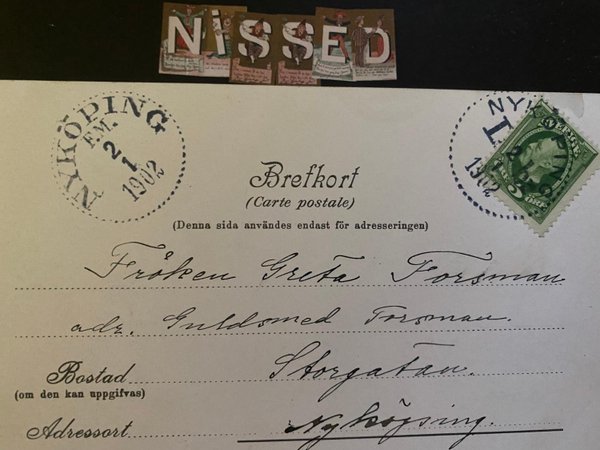 NiSSED
NYKÖPING
F.M.
2
1
1902
NYKÖPING
L
2
1902
5 ÖRE
Brefkort
(Carte postale)
(Denna sida användes endast för adresseringen)
Fröken Greta Forsman
adr. Guldsmed Forsman.
Bostad Storgatan.
(om den kan uppgifvas)
Adressort Nyköping.